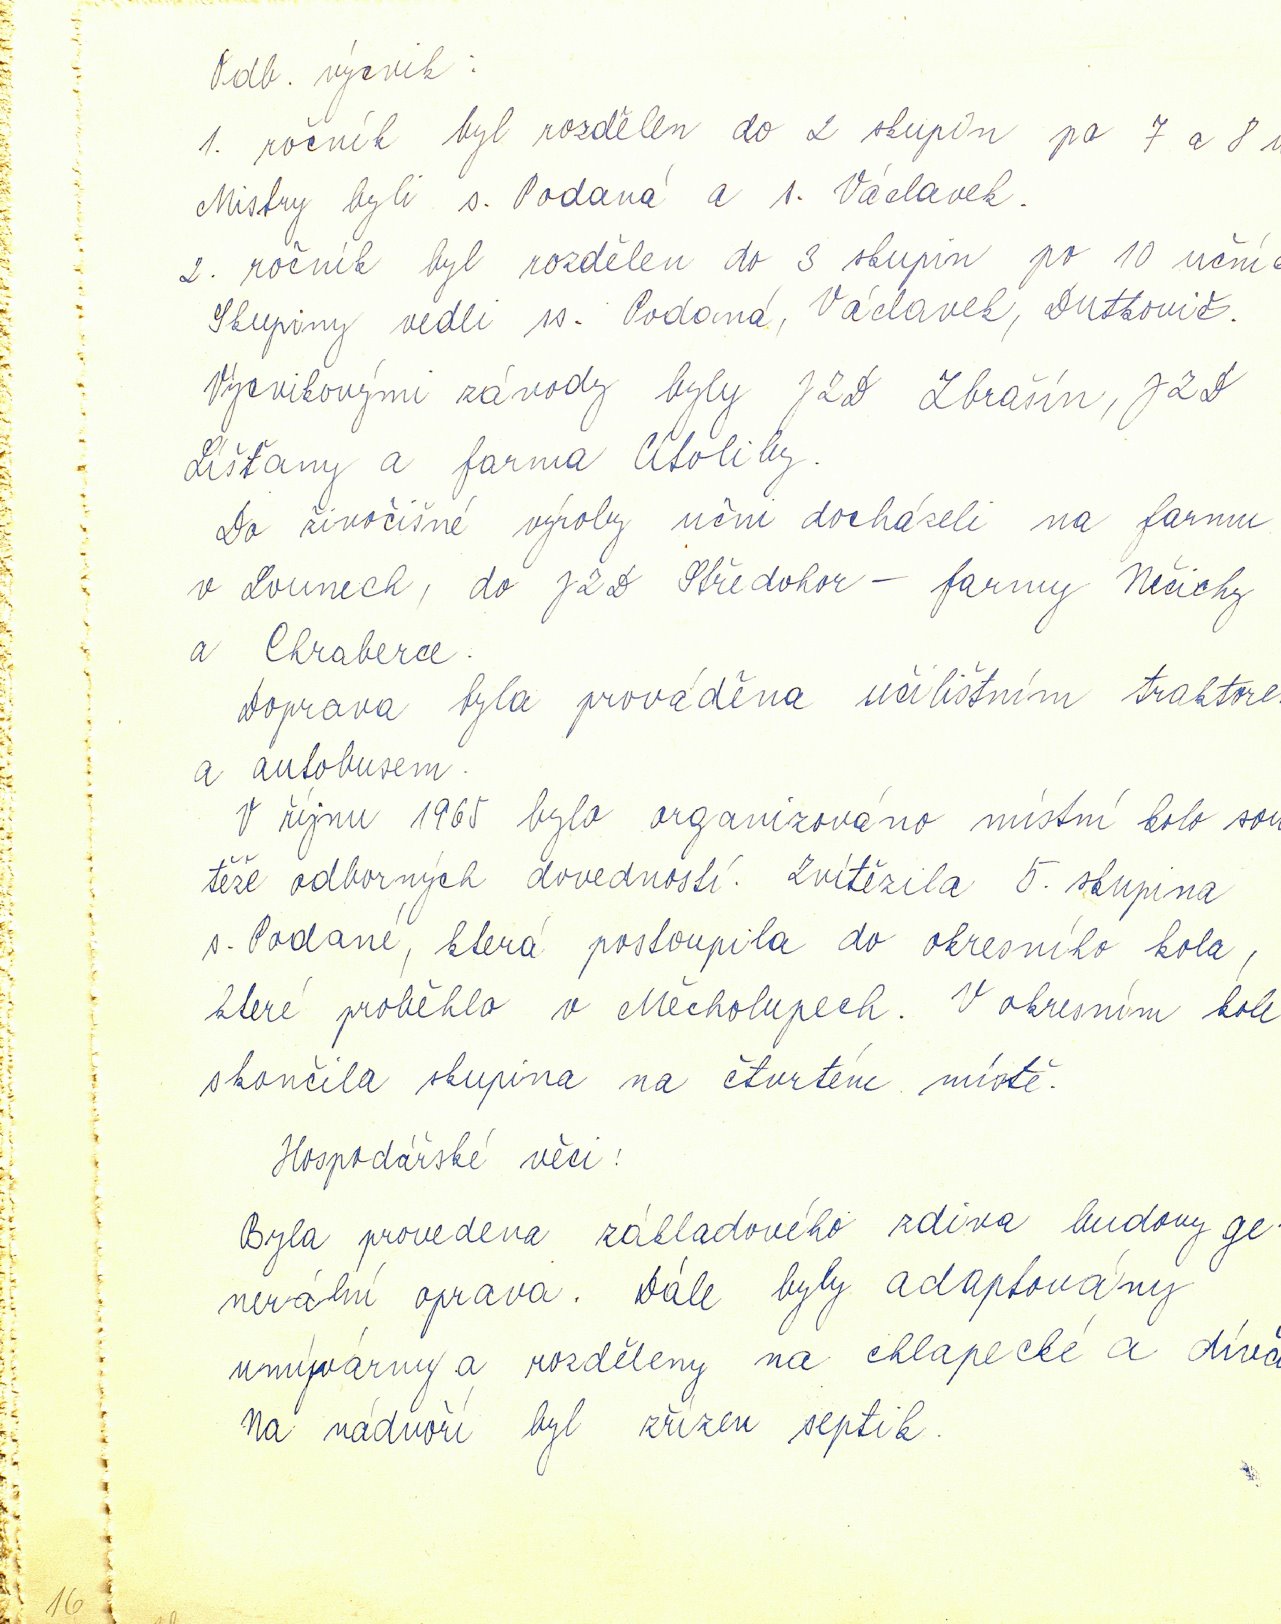 Odb. výcvik:
1. ročník byl rozdělen do 2 skupin po 7 a 8 u
Mistry byli s. Podaná a s. Václavek.
2. ročník byl rozdělen do 3 skupin po 10 učníc
Skupiny vedli ss. Podaná, Václavek, Dutkovič.
Výcvikovými závody byly JZD Zbrašín, JZD
Líšťany a farma Cítoliby.
Do živočišné výroby učni docházeli na farmu
v Lounech, do JZD Středohor – farmy Nečichy
a Chraberce.
Doprava byla prováděna učilištním traktore
a autobusem.
V říjnu 1965 bylo organizováno místní kolo sou
těže odborných dovedností. Zvítězila 5. skupina
s. Podané, která postoupila do okresního kola,
které proběhlo v Měcholupech. V okresním kole
skončila skupina na čtvrtém místě.
Hospodářské věci:
Byla provedena základového zdiva budovy ge-
nerální oprava. Dále byly adaptovány
umývárny a rozděleny na chlapecké a dívč
Na nádvoří byl zřízen septik.
16